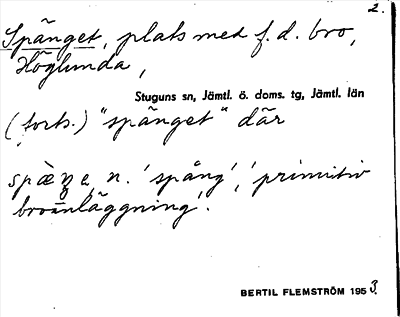 2.
Spänget, plats med f.d. bro,
Höglunda,
Stuguns sn, Jämtl. ö. doms. tg, Jämtl. län
(forts.) "spänget" där
spæ̀ŋe, n. 'spång', 'primitiv
broanläggning'.
BERTIL FLEMSTRÖM 1953.